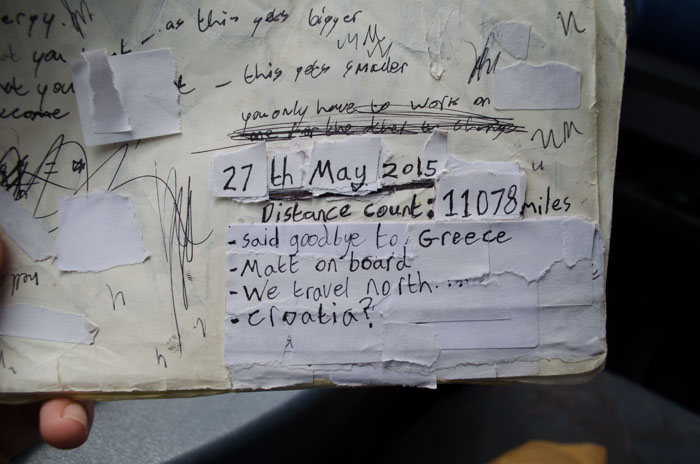 ergy. — as this gets bigger
you — this gets smaller
you only have to work on
27th May 2015
Distance count: 11078 miles
- said goodbye to Greece
- Matt on board
- We travel north....
- Croatia?